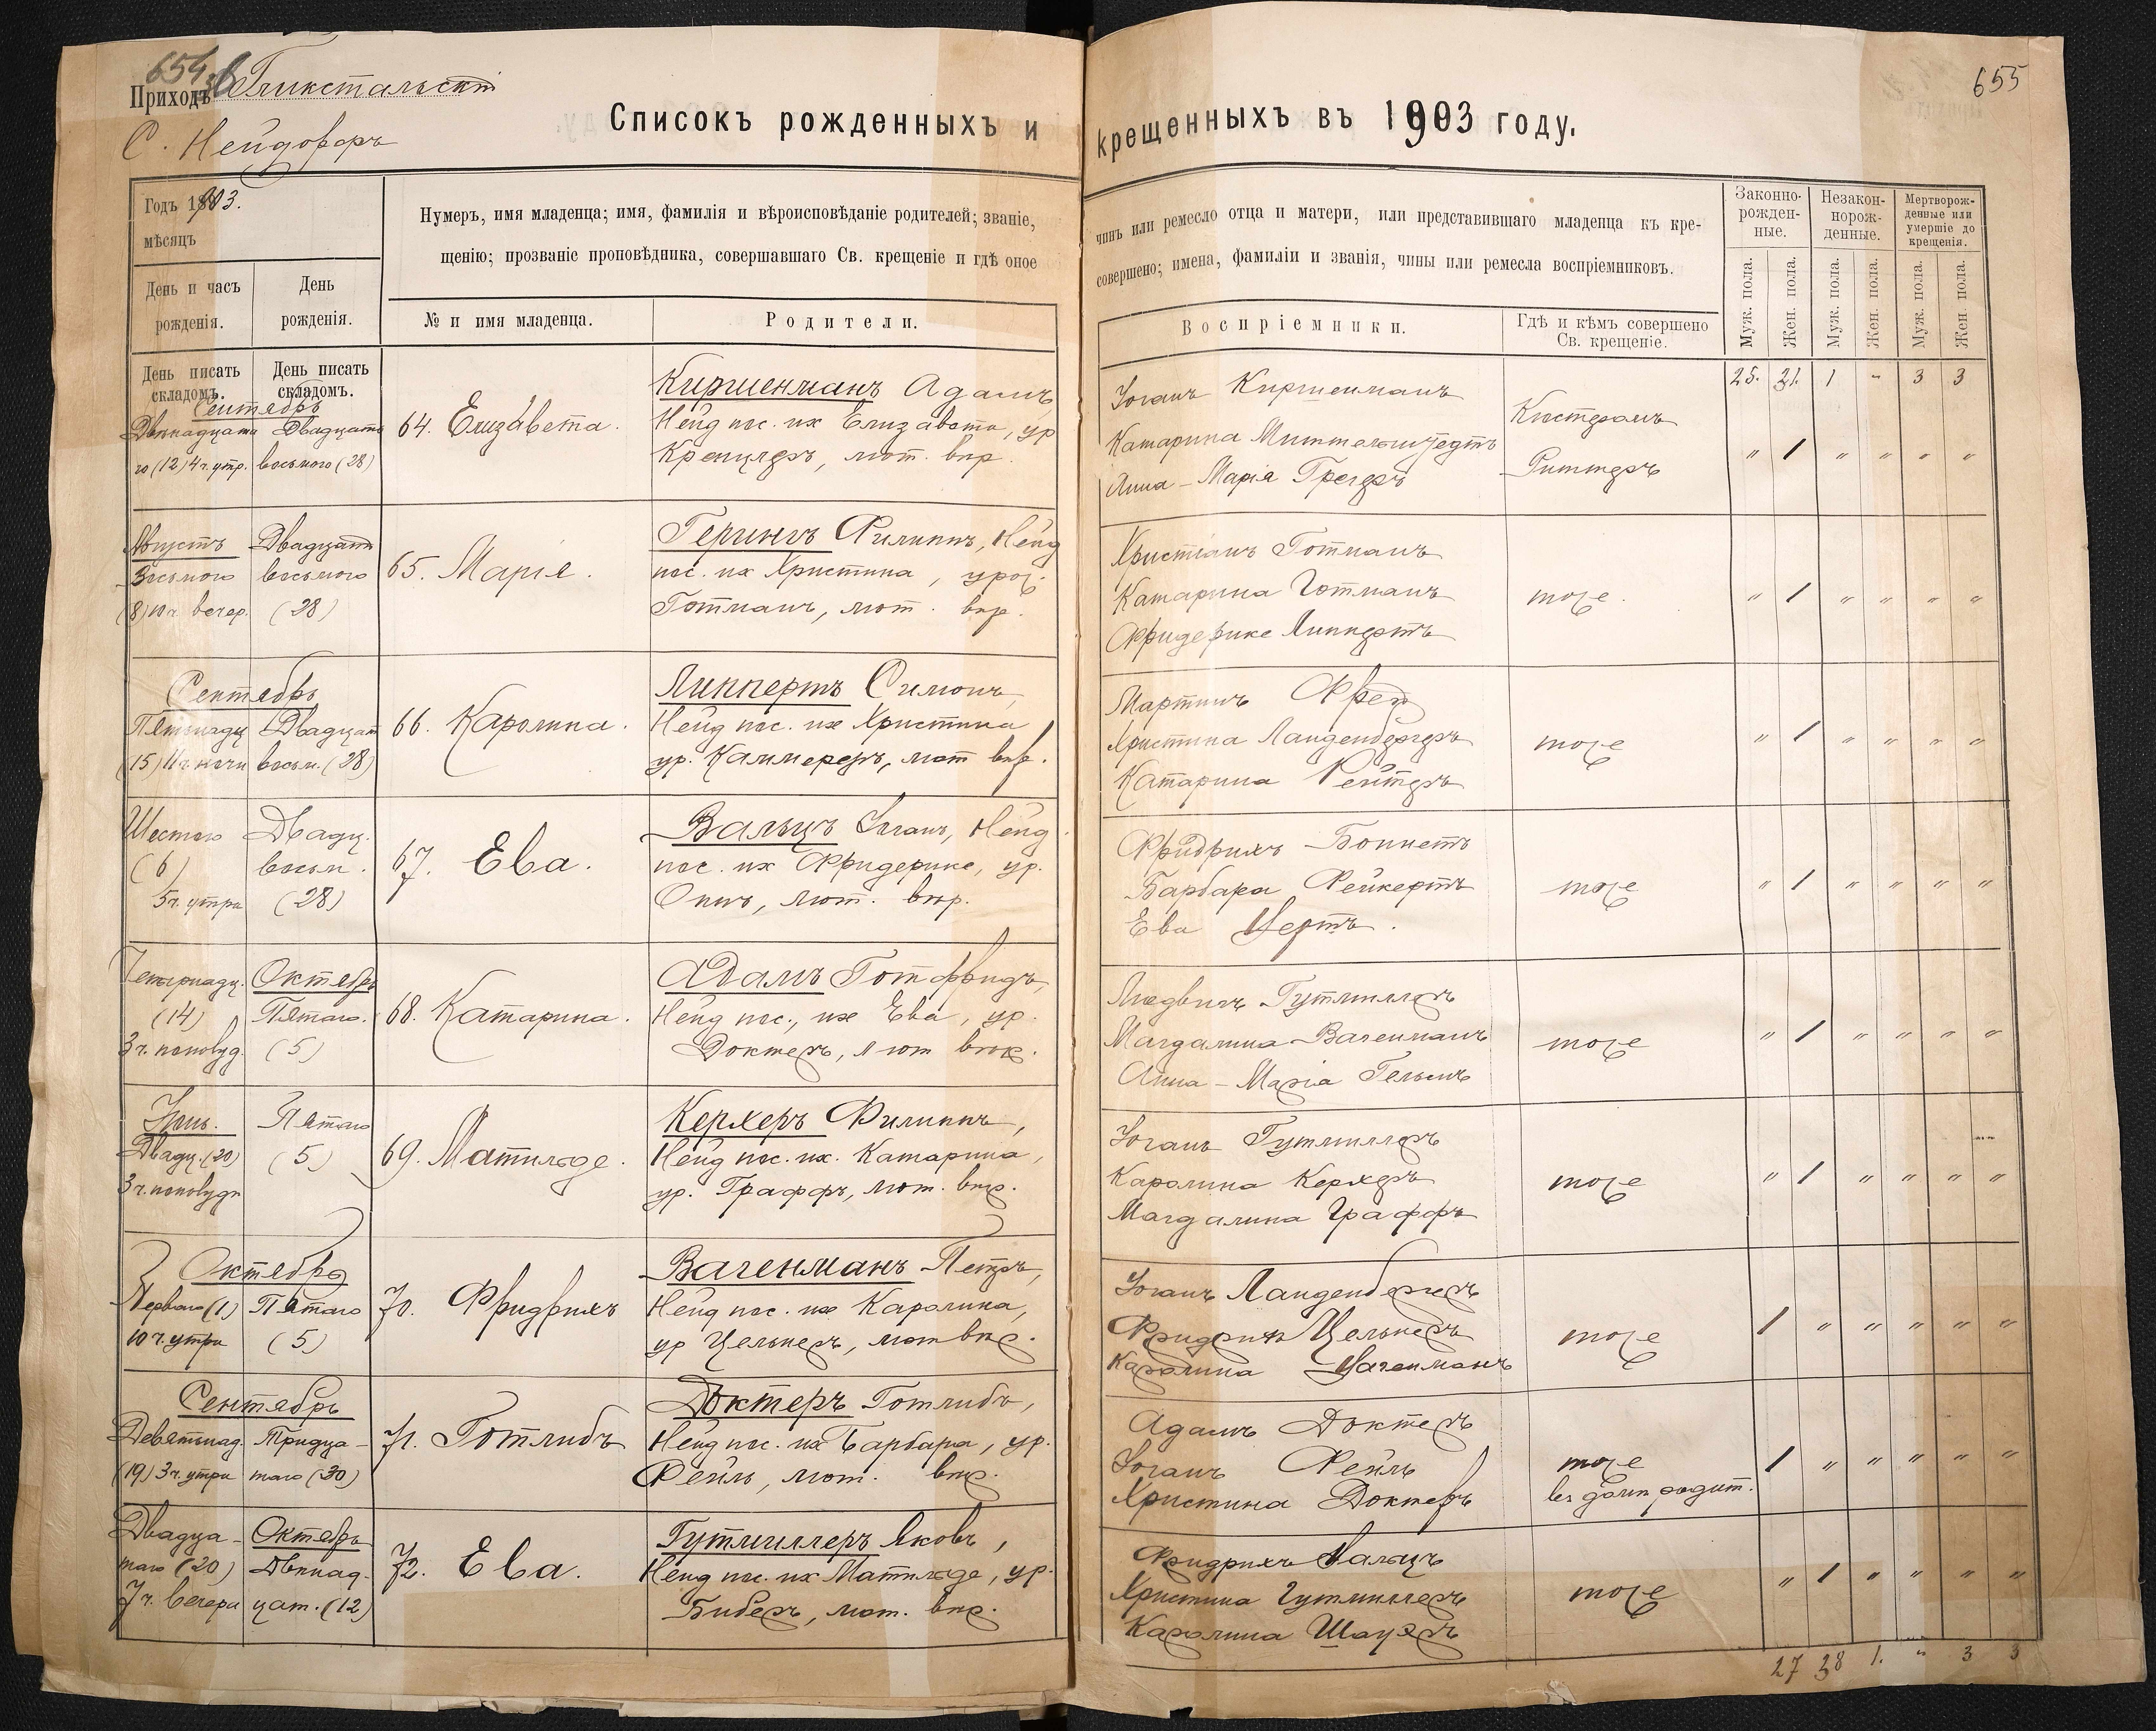 654
Приходъ Глюкстальскій
С. Нейдорфъ
Списокъ рожденныхъ и
Годъ 1903.
мѣсяцъ
Нумеръ, имя младенца; имя, фамилія и вѣроисповѣданіе родителей; званіе,
щенію; прозваніе проповѣдника, совершавшаго Св. крещеніе и гдѣ оное
День и часъ
рожденія.
День
рожденія.
№ и имя младенца.
Родители.
День писать
складомъ.
День писать
складомъ.
Сентябрь
Двѣнадцата Двадцать
го (12) 4 ч. утр. восьмого (28)
64. Елизавета.
Киршенманъ Адамъ,
Нейд пос. их Елизавета, ур
Кренцлеръ, лют. впр.
Августъ Двадцать
Восьмого восьмого
(8) 10 ч. вечер. (28)
65. Марія.
Герингъ Филиппъ, Нейд
пос. их Христина, урож.
Готманъ, лют. впр.
Сентябрь
Пятнадц Двадцат
(15) 11 ч ночи восьм. (28)
66. Каролина.
Липпертъ Симонъ,
Нейд пос. иж Христина
ур. Каммереръ, лют впр.
Шестого Двадц.
(6) восьм.
5 ч. утра (28)
67. Ева.
Вальцъ Іоганъ, Нейд.
пос. их Фридерике, ур.
Оппъ, лют. впр.
Четырнадц. Октябрь
(14) Пятаго.
3 ч. пополуд. (5)
68. Катарина.
Адамъ Готфридъ,
Нейд пос., иж Ева, ур.
Доктеръ, лют впр.
Іюнь. Пятаго
Двадц. (20) (5)
3 ч. пополудн
69. Матильде.
Керхеръ Филиппъ,
Нейд пос. их. Катарина,
ур. Граффъ, лют. впр.
Октябрь
Перваго (1) Пятаго
10 ч. утра (5)
70. Фридрихъ
Вагенманъ Петръ,
Нейд пос. иж Каролина,
ур Цельнеръ, лют впр.
Сентябрь
Девятнад. Тридца-
(19) 3 ч. утра таго (30)
71. Готлибъ
Доктеръ Готлибъ,
Нейд пос. их Барбара, ур.
Рейль, лют. впр.
Двадца- Октябрь
таго (20) Двѣнад-
7 ч. вечера цат. (12)
72. Ева.
Гутмиллеръ Яковъ,
Нейд пос. их Матильде, ур.
Биберъ, лют. впр.
655
крещенныхъ въ 1903 году.
чинъ или ремесло отца и матери, или представившаго младенца къ кре-
совершено; имена, фамиліи и званія, чины или ремесла воспріемниковъ.
Воспріемники.
Гдѣ и кѣмъ совершено
Св. крещеніе.
Законно-
рожден-
ные.
Незакон-
норож-
денные.
Мертворож-
денные или
умершіе до
крещенія.
Муж. пола.
Жен. пола.
Муж. пола.
Жен. пола.
Муж. пола.
Жен. пола.
25. 31. 1 " 3 3
Іоганъ Киршенманъ
Катарина Миттельштедтъ
Анна-Марія Грегеръ
Кюстеромъ
Риттеръ
" 1 " " " "
Христіанъ Готманъ
Катарина Готманъ
Фридерике Липпертъ
тоже.
" 1 " " " "
Мартинъ Фрей
Христина Ланденбергеръ
Катарина Рейтеръ
тоже
" 1 " " " "
Фридрихъ Боннетъ
Барбара Рейкертъ
Ева Цертъ.
тоже
" 1 " " " "
Людвигъ Гутмиллеръ
Магдалина Вагенманъ
Анна-Марія
тоже
" 1 " " " "
Іоганъ Гутмиллеръ
Каролина Керхеръ
Магдалина Граффъ
тоже
" 1 " " " "
Іоганъ Ланденбергеръ
Фридрих Цельнеръ
Каролина Вагенманъ
тоже
1 " " " " "
Адамъ Доктеръ
Іоганъ Рейль
Христина Доктеръ
тоже
въ домѣ родит.
1 " " " " "
Фридрихъ Вальцъ
Христина Гутмиллеръ
Каролина Шауэръ
тоже
" 1 " " " "
27 38 1. " 3 3